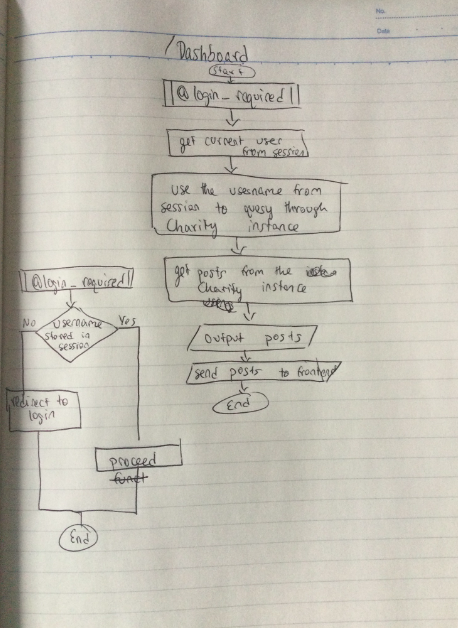 No.
Date
/Dashboard
Start
@login_required
get current user
from session
use the username from
session to query through
Charity instance
get posts from the
Charity instance
output posts
send posts to frontend
End
@login_required
No
Yes
username
stored in
session
redirect to
login
proceed
funct
End